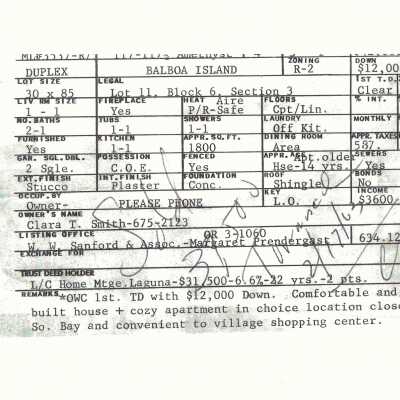 ZONING DOWN
DUPLEX BALBOA ISLAND R-2 $12,00
LOT SIZE LEGAL 1ST T.D.
30 x 85 Lot 11, Block 6, Section 3 Clear
LIV RM SIZE FIREPLACE HEAT Aire FLOORS % INT.
1 - 1 Yes P/R-Safe Cpt/Lin.
NO. BATHS TUBS SHOWERS LAUNDRY MONTHLY
2-1 1-1 1-1 Off Kit.
FURNISHED KITCHEN APP.SQ.FT. DINING ROOM APPR. TAXES
Yes 1-1 1800 Area 587.
GAR. SGL.DBL. POSSESSION FENCED APPR. AGE Apt.older SEWERS
2 Sgle. C.O.E. Yes Hse-14 yrs. Yes
EXT. FINISH INT. FINISH FOUNDATION ROOF BONDS
Stucco Plaster Conc. Shingle No
OCCUP. BY KEY INCOME
Owner- PLEASE PHONE L.O. $3600
OWNER'S NAME
Clara T. Smith-675-2123
LISTING OFFICE OR 3-1060
W. W. Sanford & Assoc.-Margaret Prendergast 634.12
EXCHANGE FOR
Sold
TRUST DEED HOLDER
L/C Home Mtge.Laguna-$31/500-6.6%-22 yrs.-2 pts.
REMARKS *OWC 1st. TD with $12,000 Down. Comfortable and
built house + cozy apartment in choice location close
So. Bay and convenient to village shopping center.